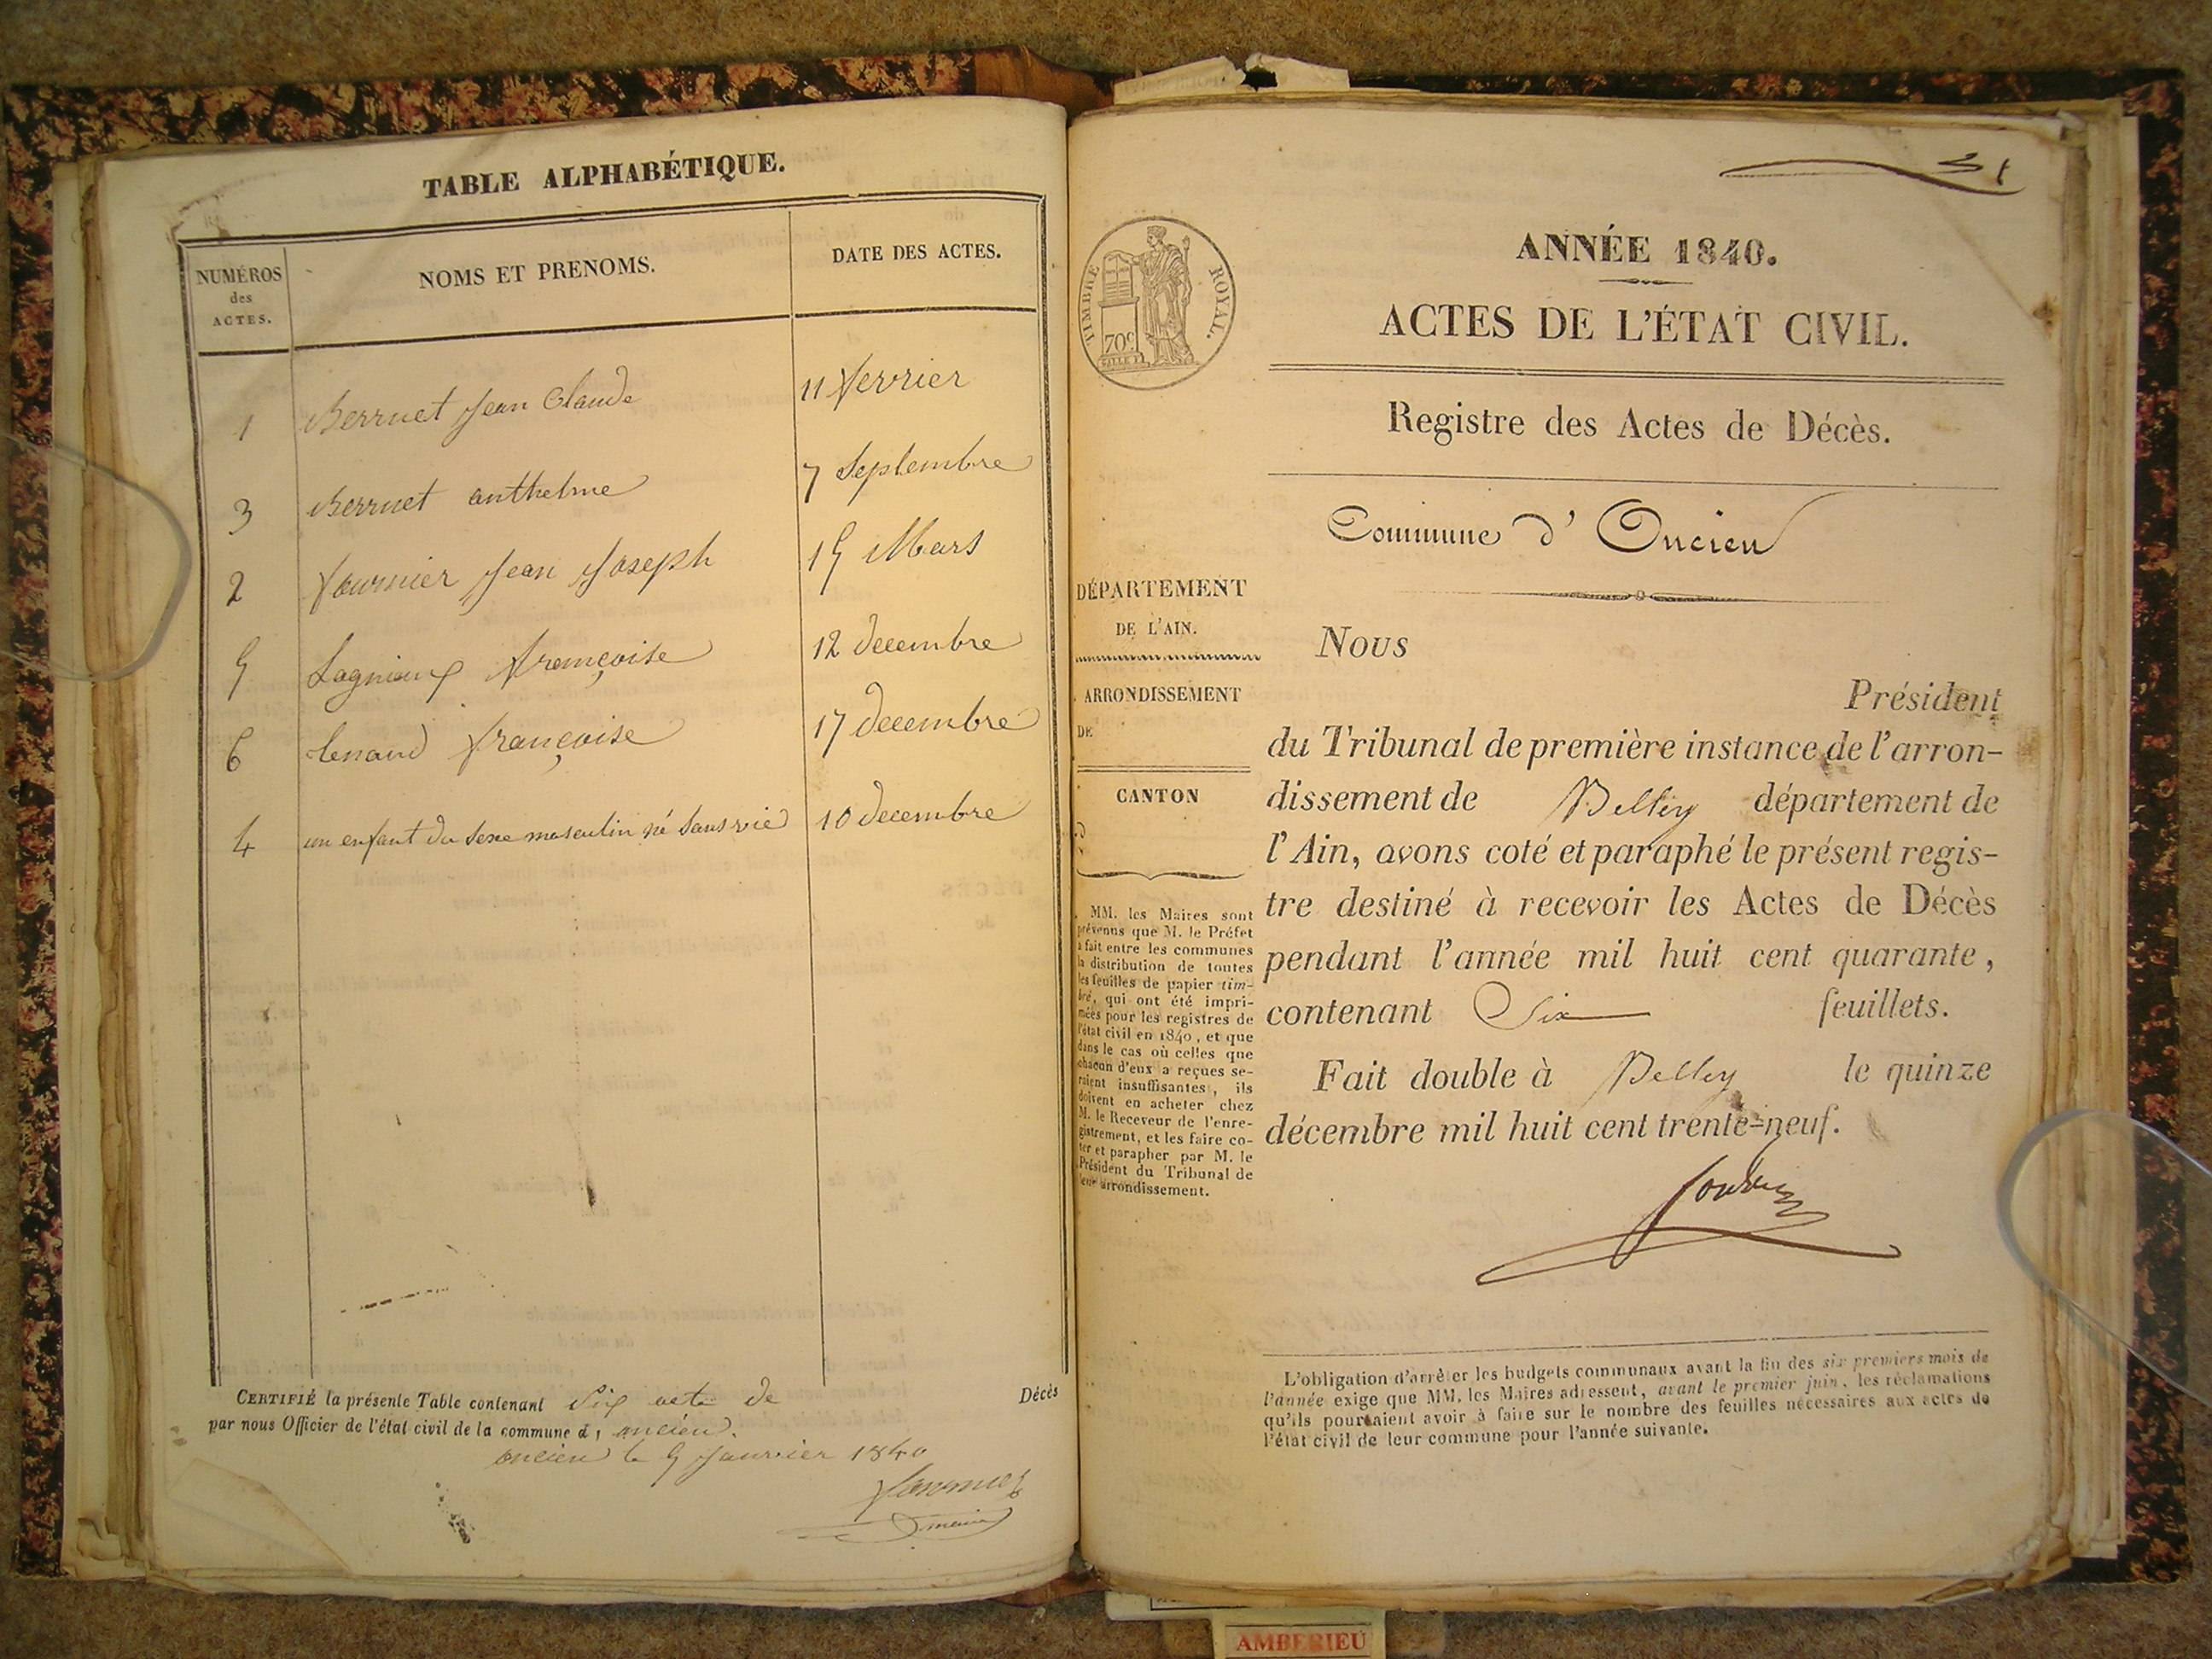 TABLE ALPHABÉTIQUE.
NUMÉROS
des
ACTES.
NOMS ET PRENOMS.
DATE DES ACTES.
1 Berruet Jean Claude 11 fevrier
3 Berruet anthelme 7 Septembre
2 fournier Jean Joseph 15 Mars
5 Lagnieux françoise 12 decembre
6 françoise 17 decembre
4 un enfant du sexe masculin né sans vie 10 decembre
CERTIFIÉ la présente Table contenant Six acte de Décès
par nous Officier de l'état civil de la commune d' oncieu.
oncieu le 5 Janvier 1840
maire
31
TIMBRE ROYAL.
70c
ANNÉE 1840.
ACTES DE L'ÉTAT CIVIL.
Registre des Actes de Décès.
Commune d' Oncieu
DÉPARTEMENT
DE L'AIN.
ARRONDISSEMENT
DE
CANTON
MM. les Maires sont
prévenus que M. le Préfet
a fait entre les communes
la distribution de toutes
les feuilles de papier tim-
bré, qui ont été impri-
mées pour les registres de
l'état civil en 1840, et que
dans le cas où celles que
chacun d'eux a reçues se-
raient insuffisantes, ils
doivent en acheter chez
M. le Receveur de l'enre-
gistrement, et les faire co-
ter et parapher par M. le
Président du Tribunal de
leur arrondissement.
Nous
Président
du Tribunal de première instance de l'arron-
dissement de Belley département de
l'Ain, avons coté et paraphé le présent regis-
tre destiné à recevoir les Actes de Décès
pendant l'année mil huit cent quarante,
contenant Six feuillets.
Fait double à Belley le quinze
décembre mil huit cent trente-neuf.
L'obligation d'arrêter les budgets communaux avant la fin des six premiers mois de
l'année exige que MM. les Maires adressent, avant le premier juin, les réclamations
qu'ils pourraient avoir à faire sur le nombre des feuilles nécessaires aux actes de
l'état civil de leur commune pour l'année suivante.
AMBERIEU